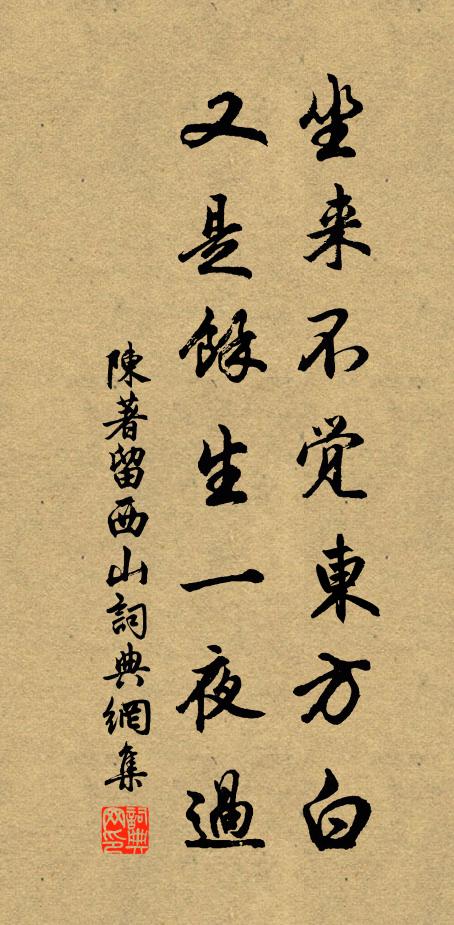 坐来不觉東方白
又是餘生一夜過
陳著留西山詞典網集
詞典
网印